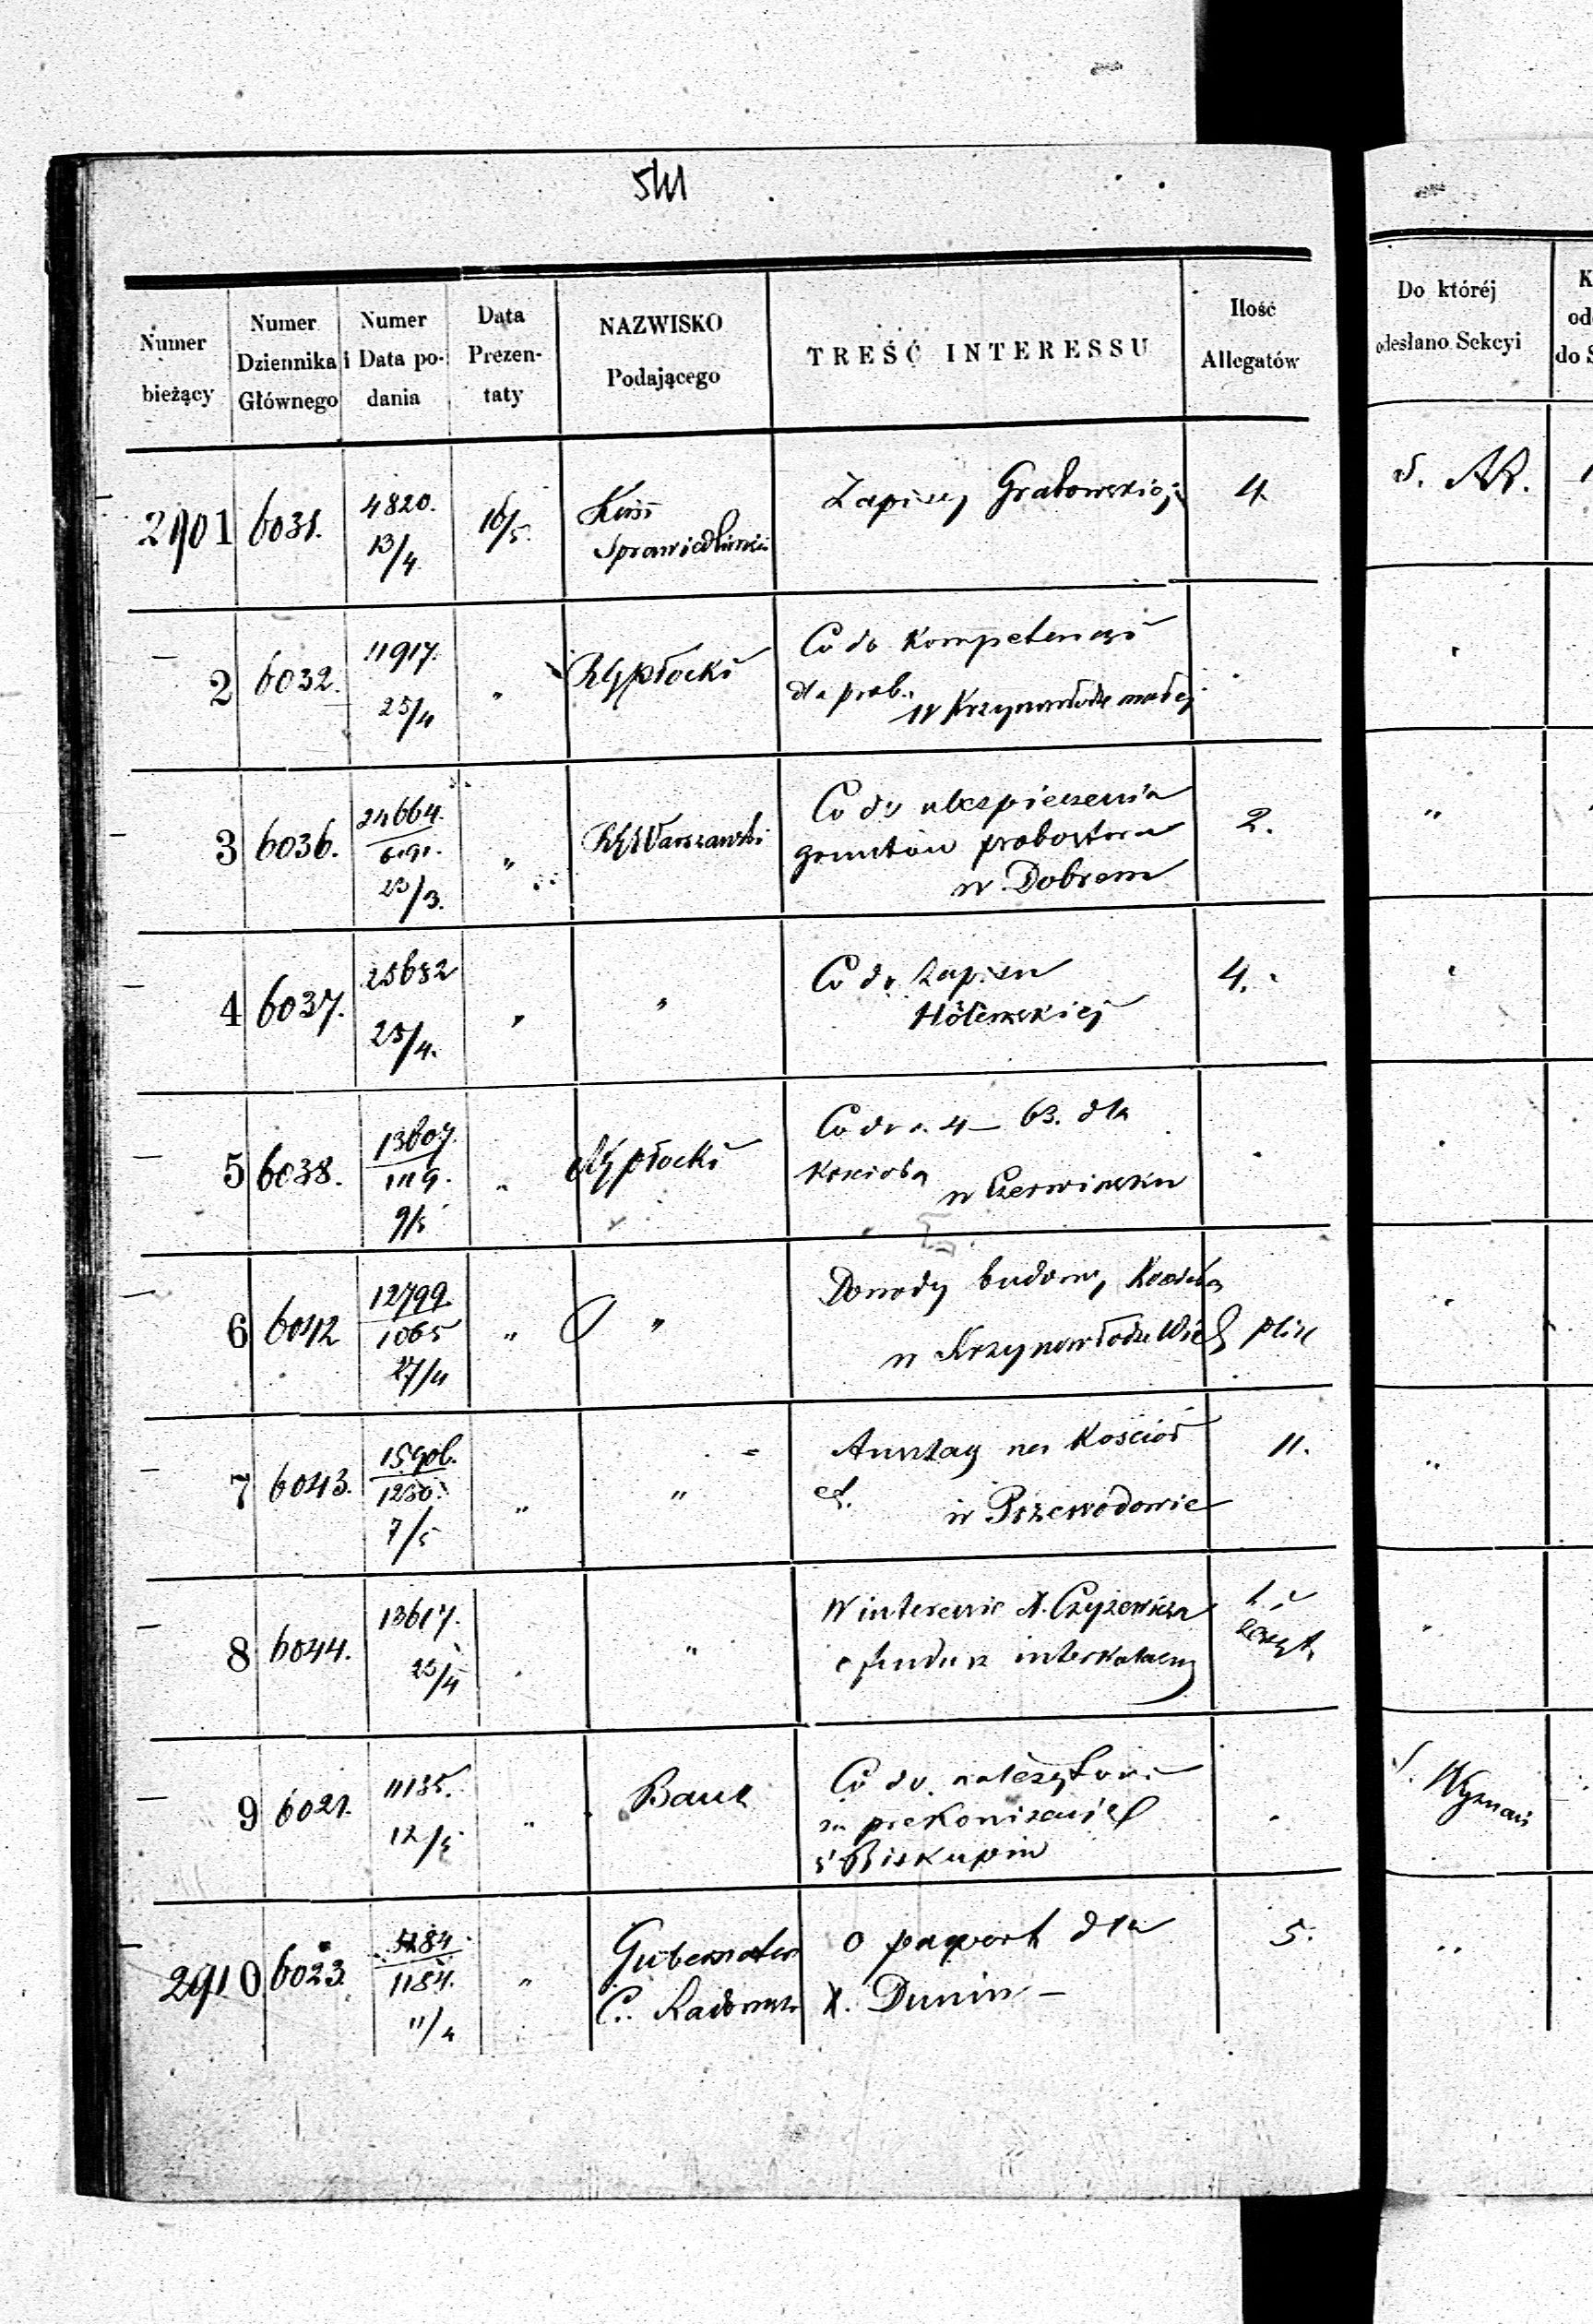 541
Numer bieżący | Numer Dziennika Głównego | Numer i Data podania | Data Prezentaty | NAZWISKO Podającego | TREŚĆ INTERESSU | Ilość Allegatów | Do któréj odesłano Sekcyi
2901 6031. 4820. 13/4 16/5. Sprawiedliwości Zapisy Grabowskiej 4. S.
2 6032. 11917. 25/4 " RG Płocki Co do Kompetencyi
dla prob. w Krzynowłodze małej
3 6036. 24664. 23/3. " RG Warszawski Co do ubezpieczenia 2. "
gruntów probostwa
w Dobrem
4 6037. 25652 25/4. " " Co do Zapisu 4. "
5 6038. 13607. 1119. 9/5 " RG Płocki Co do r. 4 — 63. dla
Kościoła w Czerwińsku
6 6042 12799. 1065 27/4 " " Dowody budowy Kościoła
w Krzynowłodze Wiel plik
7 6043. 15906. 1250. 7/5 " " Anszlag na Kościół 11. "
w Przewodowie
8 6044. 13617. 25/4 " W interesie X. Czyżewicza "
o fundusz interkalarny
9 6021. 11135. 12/5 " Bank Co do należytości S. Wyznań
za prekonizacyą
Biskupin
2910 6023. 1184. 11/4 " Gubernator O paszport dla 5. "
C. Radomski X. Dunin —